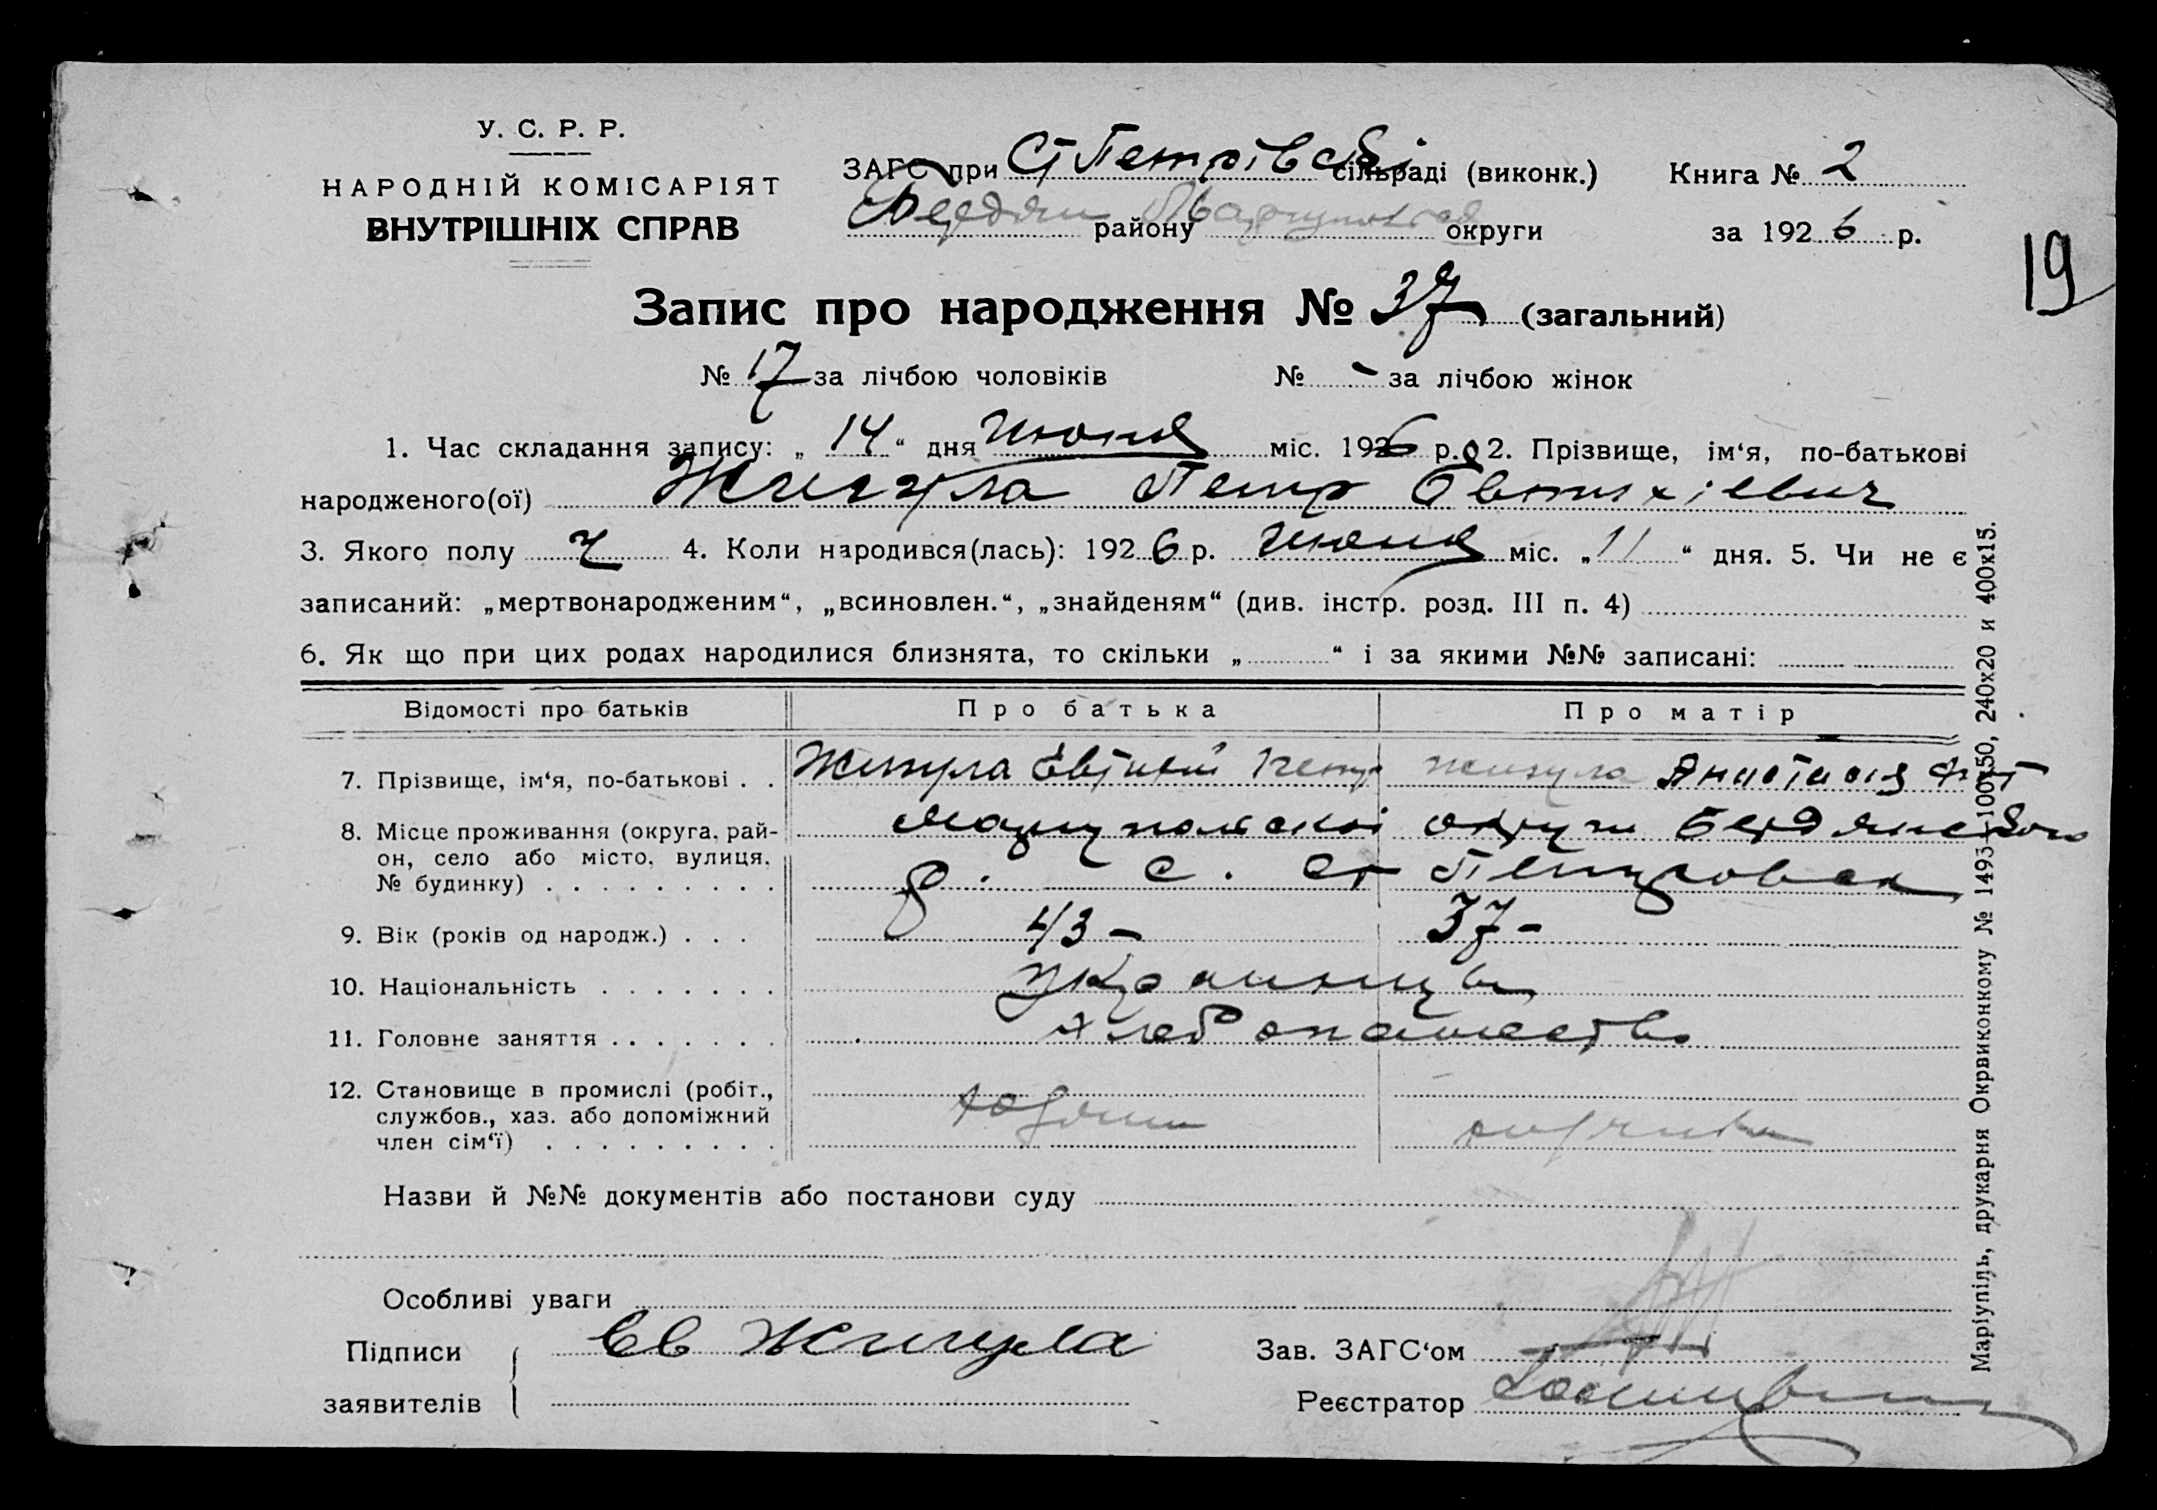 У. С. Р. Р.
НАРОДНІЙ КОМІСАРІЯТ
ВНУТРІШНІХ СПРАВ
ЗАГС при Ст Петрівскі сільраді (виконк.) Книга № 2
Бердян району округи за 1926 р.
19
Запис про народження № 37 (загальний)
№ 17 за лічбою чоловіків № - за лічбою жінок
1. Час складання запису: „ 14 “ дня Июня міс. 1926 р. 2. Прізвище, ім‘я, по-батькові
народженого(ої) Жигула Петр Евтихіевич
3. Якого полу ч 4. Коли народився(лась): 1926 р. Июня міс. „ 11 “ дня. 5. Чи не є
записаний: „мертвонародженим“, „всиновлен.“, „знайденям“ (див. інстр. розд. III п. 4)
6. Як що при цих родах народилися близнята, то скільки „ “ і за якими №№ записані:
Відомості про батьків Про батька Про матір
7. Прізвище, ім‘я, по-батькові . . Жигула Евтихій Жигула Анастасия
8. Місце проживання (округа, рай- Мариупольскои округи Бердянского
он, село або місто, вулиця,
№ будинку) . . . . . . . . . р. с. Ст Петровка
9. Вік (років од народж.) . . . 43 - 37 -
10. Національність . . . . . . . украинцы
11. Головне заняття . . . . . . . хлебопашество
12. Становище в промислі (робіт.,
службов., хаз. або допоміжний
член сім‘ї) . . . . . . . . .
Назви й №№ документів або постанови суду
Особливі уваги
Підписи Ев Жигула Зав. ЗАГС‘ом
заявителів Реєстратор
Маріупіль, друкарня Окрвиконкому № 1493-100х50, 240х20 и 400х15.